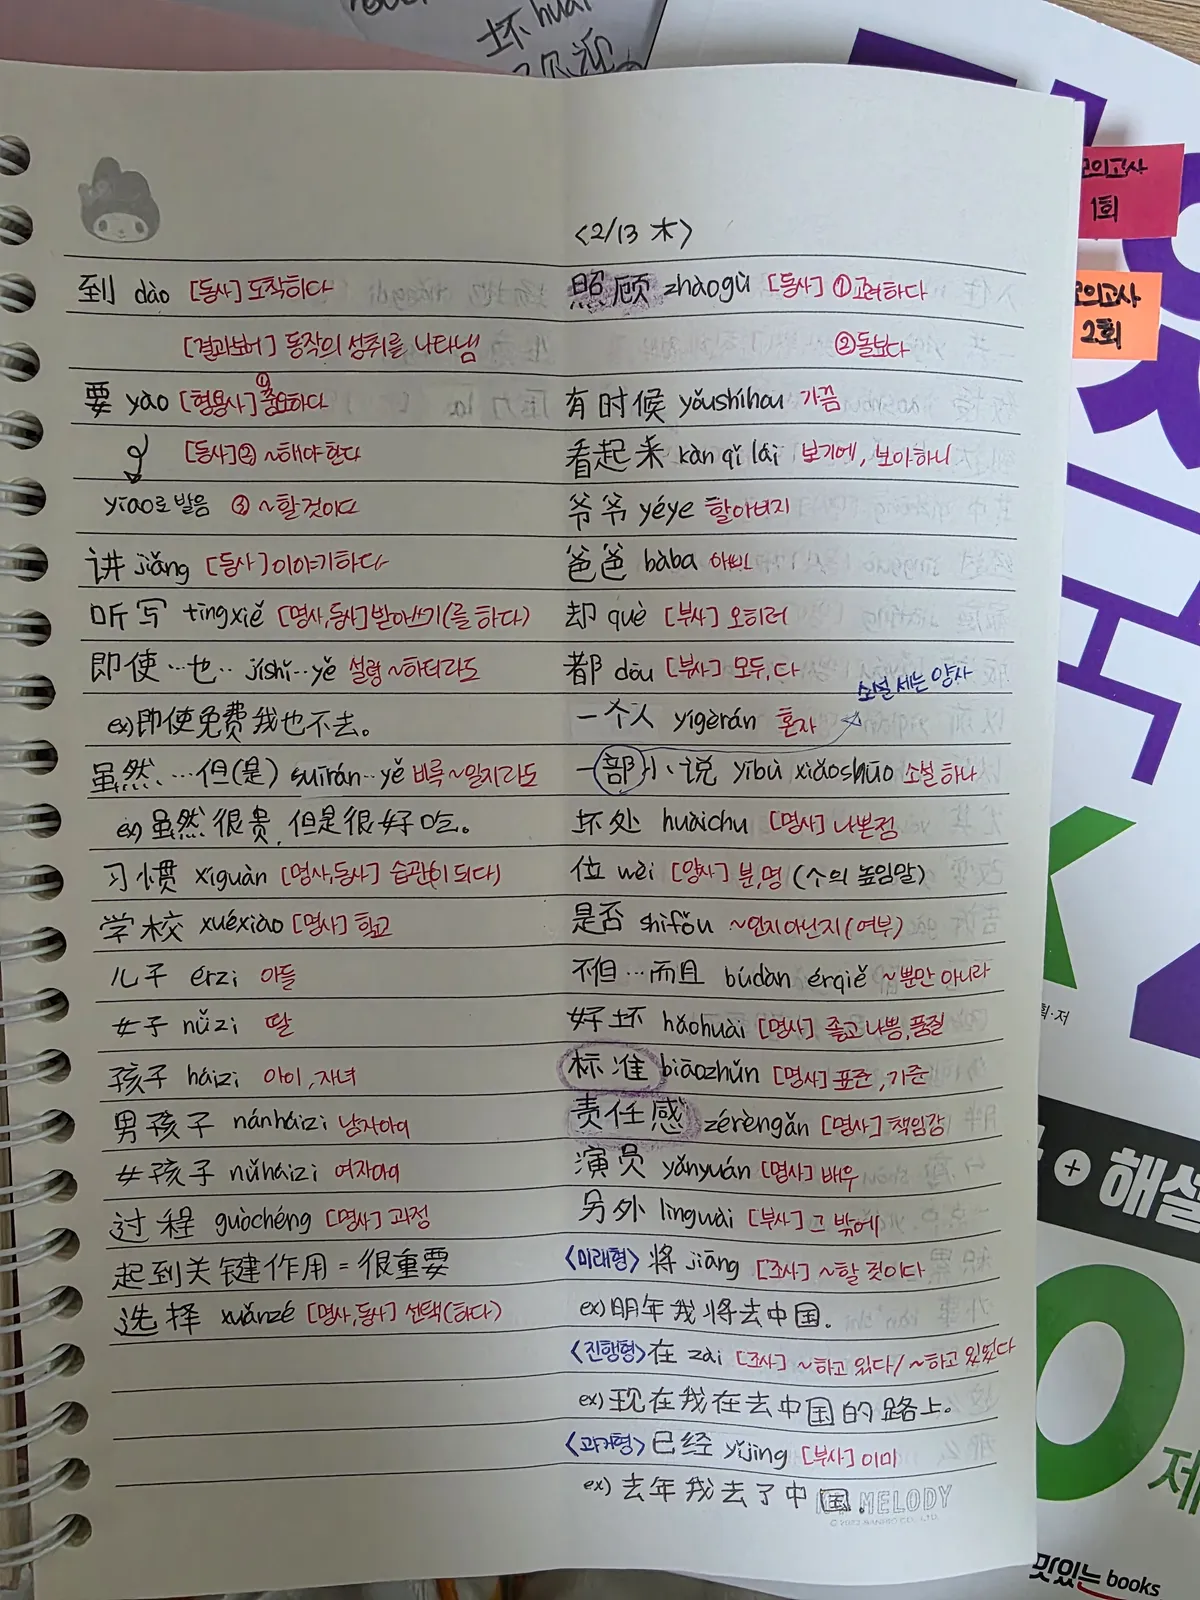 坏 huài
到 dào [동사] 도착하다
[결과보어] 동작의 성취를 나타냄
要 yào [형용사] ①중요하다
[동사]② ~해야 한다
yiao로 발음 ③ ~할 것이다
讲 jiǎng [동사] 이야기하다
听写 tīngxiě [명사,동사] 받아쓰기(를 하다)
即使…也.. jíshǐ…yě 설령 ~하더라도
ex) 即使免费我也不去。
虽然, …但(是) suīrán…yě 비록 ~일지라도
ex) 虽然很贵, 但是很好吃。
习惯 xíguàn [명사,동사] 습관(이 되다)
学校 xuéxiào [명사] 학교
儿子 érzi 아들
女子 nǚzi 딸
孩子 háizi 아이, 자녀
男孩子 nánháizi 남자아이
女孩子 nǚháizi 여자아이
过程 guòchéng [명사] 과정
起到关键作用 = 很重要
选择 xuǎnzé [명사,동사] 선택(하다)
<2/13 木>
照顾 zhàogù [동사] ①고려하다
②돌보다
有时候 yǒushíhou 가끔
看起来 kàn qǐ lái 보기에, 보아하니
爷爷 yéye 할아버지
爸爸 bàba 아빠
却 què [부사] 오히려
都 dōu [부사] 모두, 다
소설 세는 양사
一个人 yígèrén 혼자
一部小说 yíbù xiǎoshuō 소설 하나
坏处 huàichu [명사] 나쁜점
位 wèi [양사] 분, 명 (个의 높임말)
是否 shìfǒu ~인지 아닌지(여부)
不但…而且 búdàn érqiě ~뿐만 아니라
好坏 hǎohuài [명사] 좋고 나쁨, 품질
标准 biāozhǔn [명사] 표준, 기준
责任感 zérèngǎn [명사] 책임감
演员 yǎnyuán [명사] 배우
另外 lìngwài [부사] 그 밖에
<미래형> 将 jiāng [조사] ~할 것이다
ex) 明年我将去中国.
<진행형> 在 zài [조사] ~하고 있다/ ~하고 있었다
ex) 现在我在去中国的路上。
<과거형> 已经 yǐjīng [부사] 이미
ex) 去年我去了中国.
MY MELODY
모의고사
1회
모의고사
2회
획·저
+ 해설
제
맛있는 books